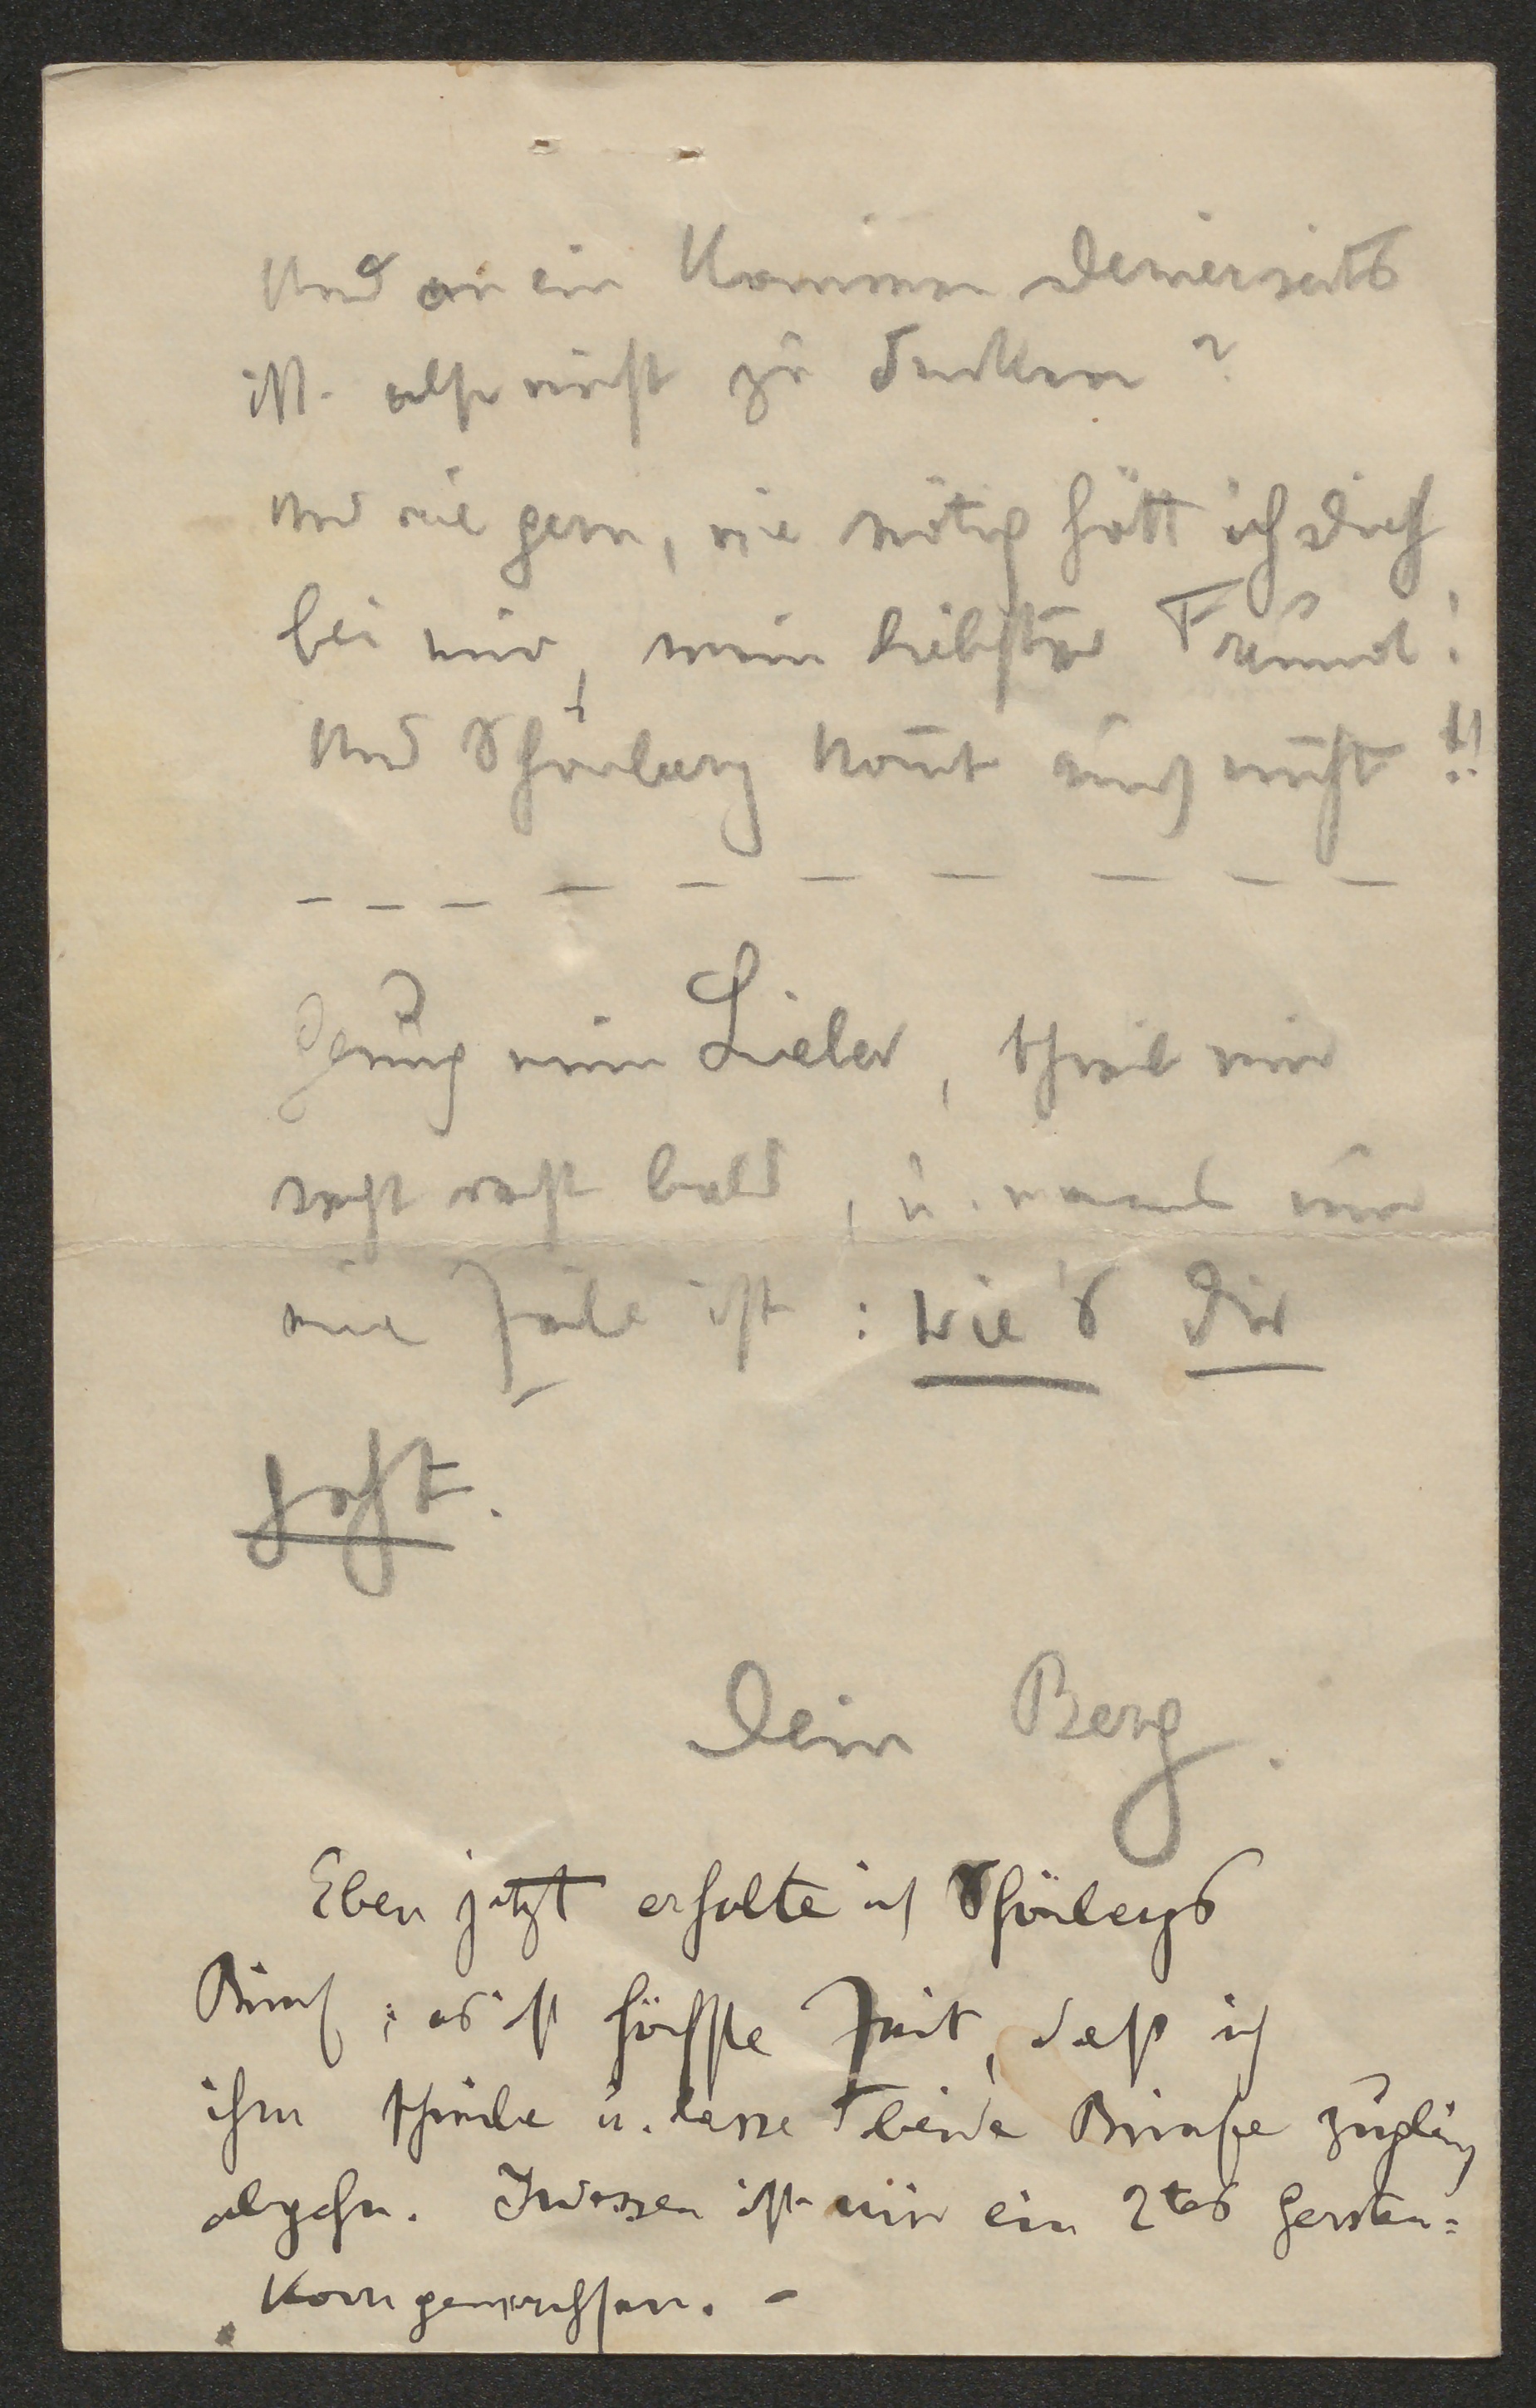 Und an ein Kommen Deinerseits
ist also nicht zu denken?
Und wie gern, wie nötig hätt ich Dich
bei mir, mein liebster Freund!
Und Schönberg kom̄t auch nicht!!
– – – – – – – – – –
Genug mein Lieber, schreib mir
recht recht bald, u. wenns nur
eine Zeile ist: wie's Dir
geht.
Dein Berg.
Eben jetzt erhalte ich Schönbergs
Brief; es ist höchste Zeit, daß ich
ihm schreibe u. lasse beide Briefe zugleich
abgehn. Indessen ist mir ein 2tes Gersten=
korn gewachsen. –